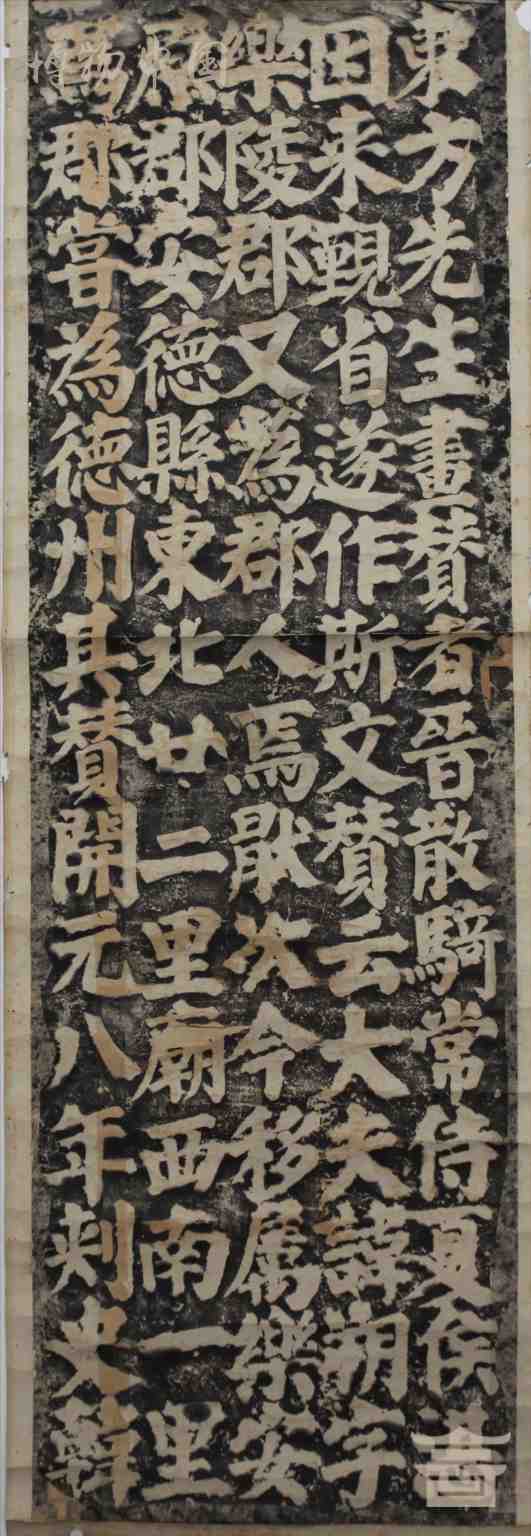 東方先生畫賛者晉散騎常侍夏侯
因来覲省遂作斯文賛云大夫諱朔字
樂陵郡又為郡人焉猒次今移属樂安
原郡安徳縣東北廿二里廟西南一里
郡嘗為徳州其賛開元八年刺史韓